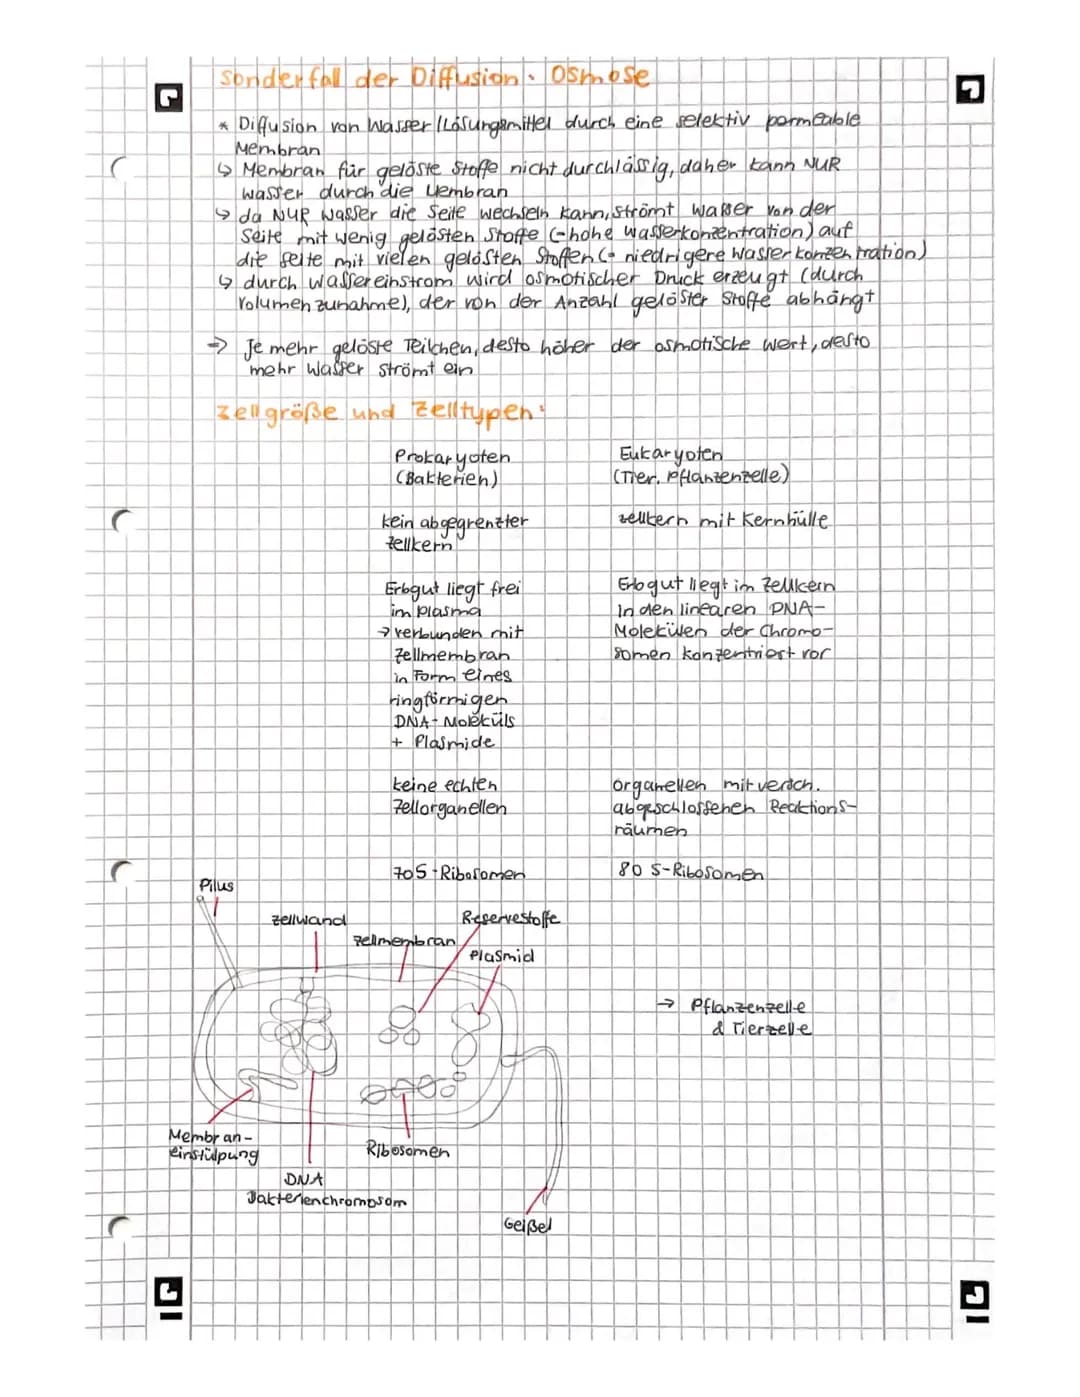 Sonderfall der Diffusion: Osmose
* Diffusion von Wasser/Lösungsmittel durch eine selektiv permeable
Membran
↳ Membran für gelöste Stoffe nicht durchlässig, daher kann NUR
wasser durch die Membran
↳ da NUR Wasser die Seite wechseln kann, strömt Wasser von der
Seite mit wenig gelösten Stoffe (= hohe Wasserkonzentration) auf
die Seite mit vielen gelösten Stoffen (= niedrigere Wasserkonzentration)
↳ durch Wassereinstrom wird osmotischer Druck erzeugt (durch
Volumenzunahme), der von der Anzahl gelöster Stoffe abhängt
→ Je mehr gelöste Teilchen, desto höher der osmotische Wert, desto
mehr Wasser strömt ein
Zellgröße und Zelltypen:
Prokaryoten
(Bakterien)
Eukaryoten
(Tier, Pflanzenzelle)
kein abgegrenzter
Zellkern
zellkern mit Kernhülle
Erbgut liegt frei
im Plasma
→ verbunden mit
Zellmembran
in Form eines
ringförmigen
DNA-Moleküls
+ Plasmide
Erbgut liegt im Zellkern
In den linearen DNA-
Molekülen der Chromo-
somen konzentriert vor
keine echten
Zellorganellen
Organellen mit versch.
abgeschlossenen Reaktions-
räumen
70S-Ribosomen
80 S-Ribosomen
Pilus
Zellwand
Reservestoffe
Zellmembran
Plasmid
→ Pflanzenzelle
& Tierzelle
Membran-
einstülpung
Ribosomen
DNA
Bakterienchromosom
Geißel